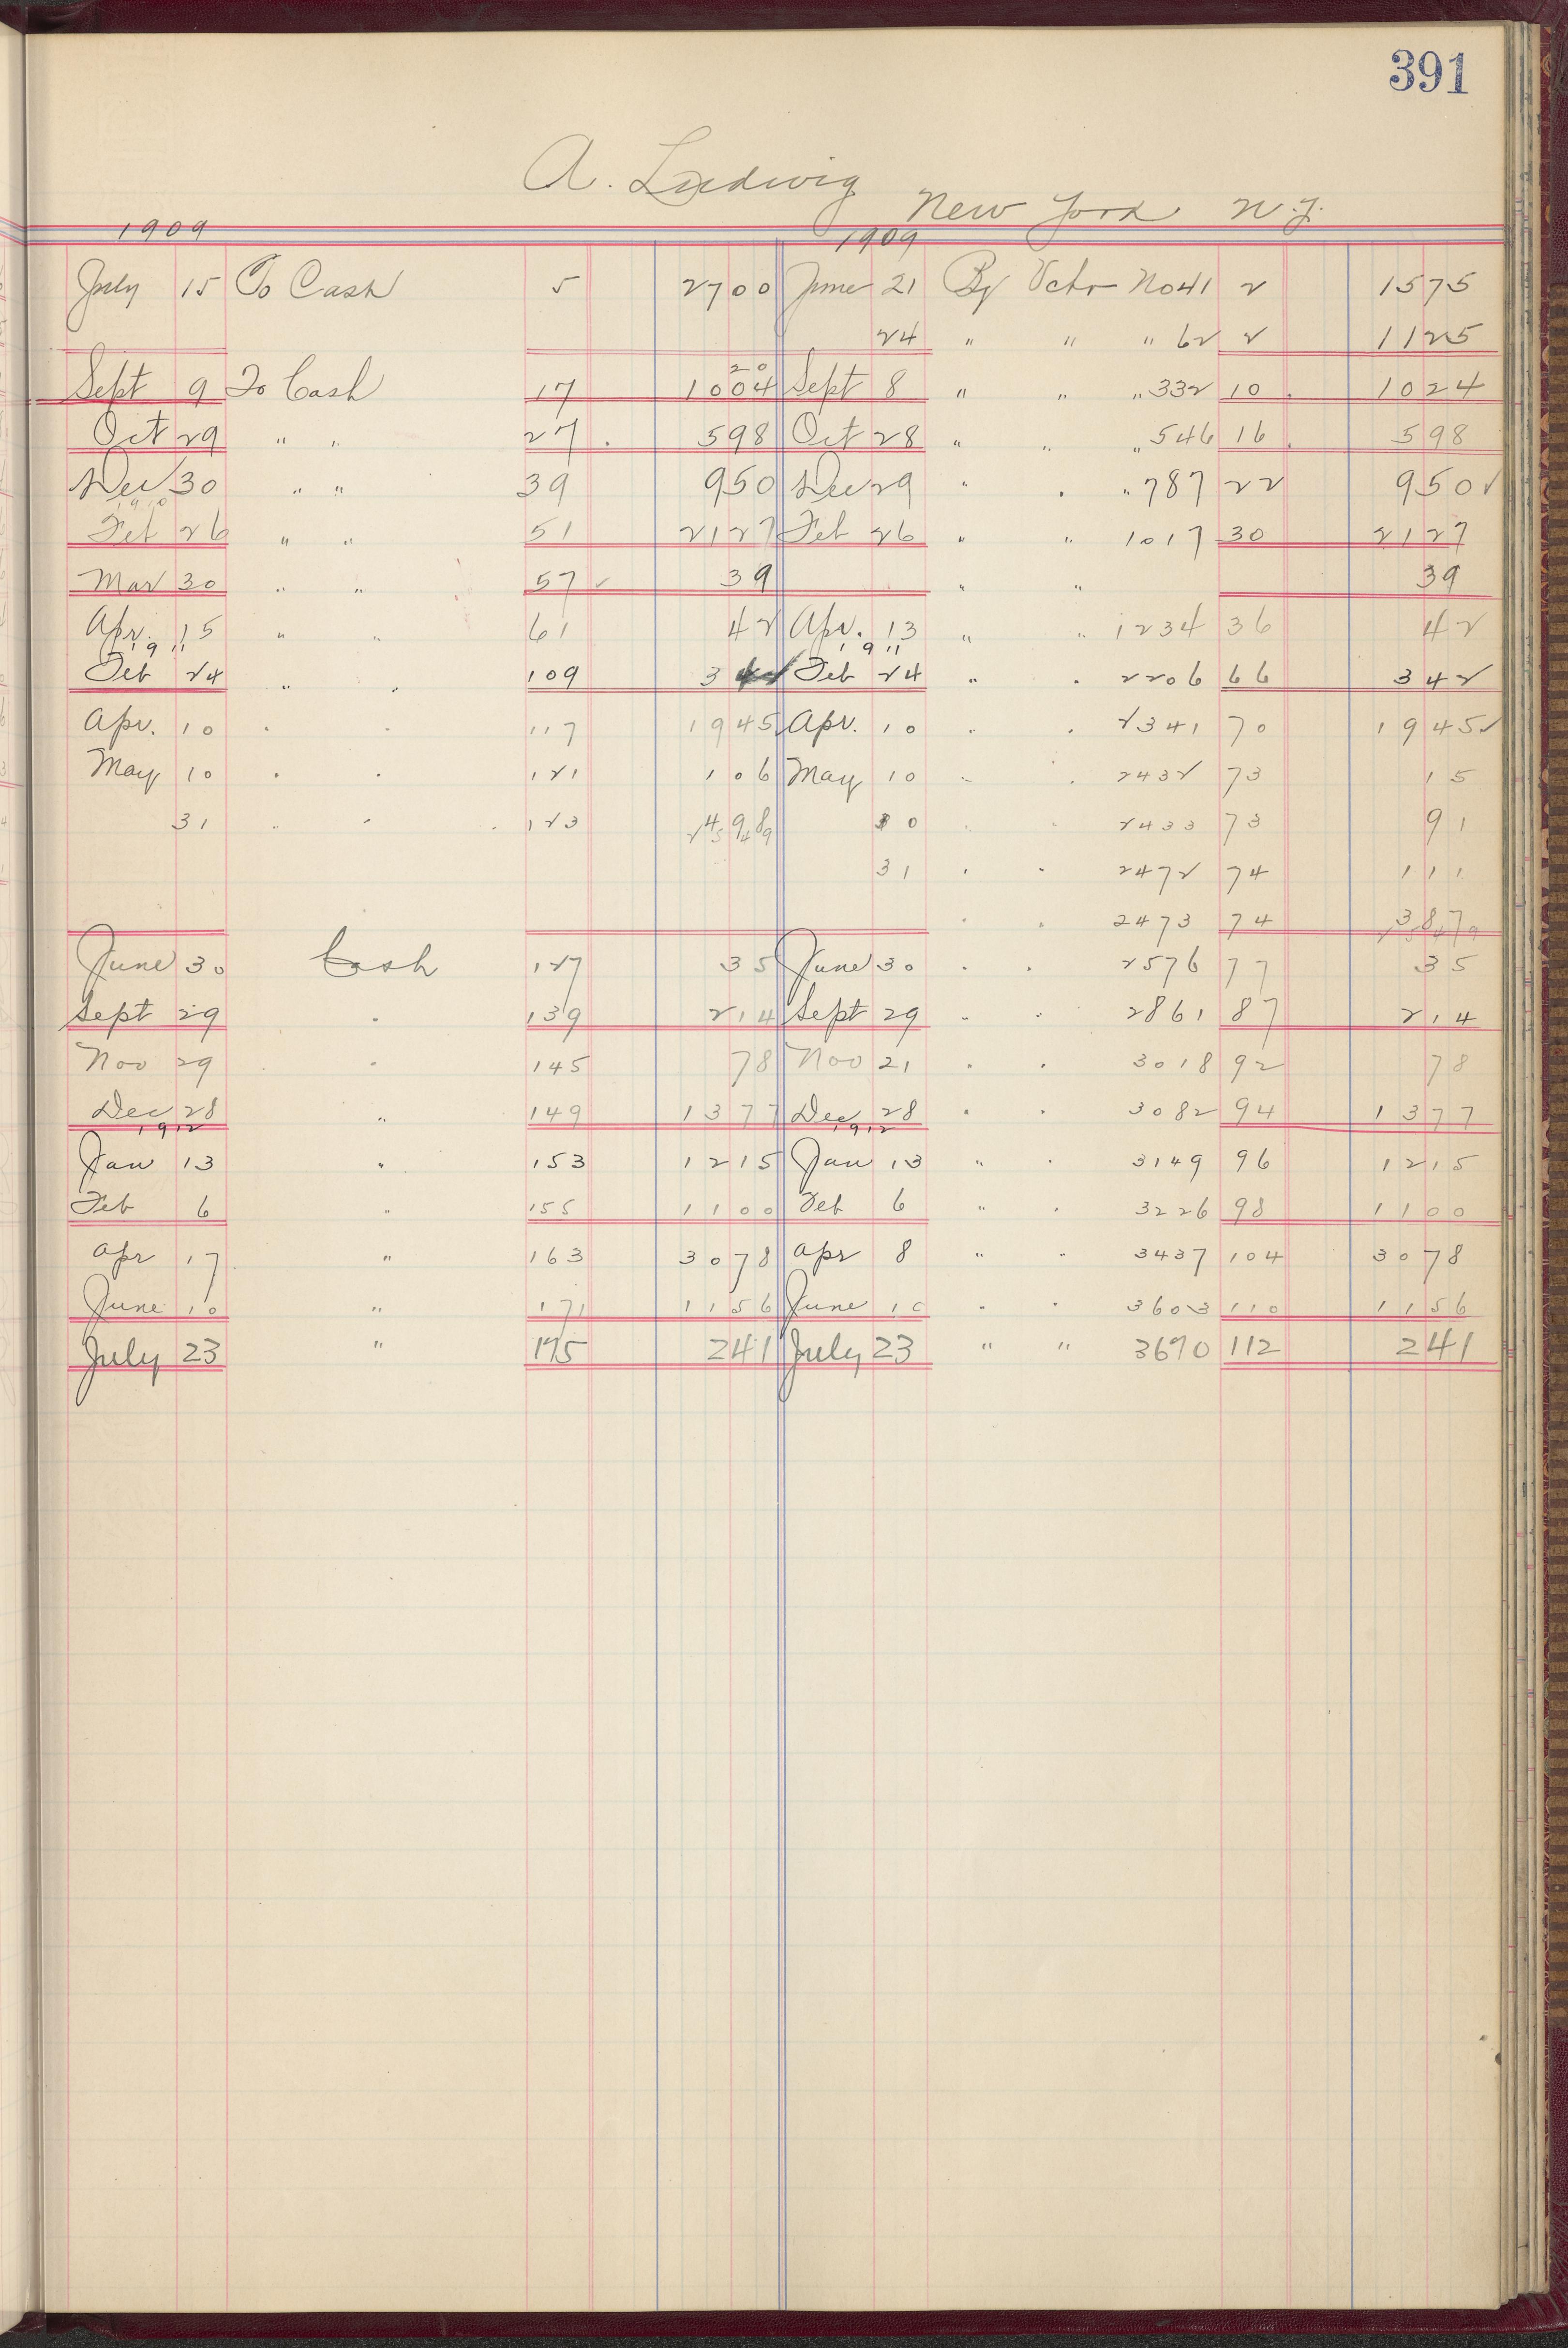 391
A. Ludwig
New York N.Y.
1909 1909
July 15 To Cash 5 2700 June 21 By Vchr No 41 2 1575
24 " " " 62 2 1125
20
Sept 9 To Cash 17 1004 Sept 8 " " " 332 10 1024
Oct 29 " " 27 598 Oct 28 " " " 546 16 598
Dec 30 " " 39 950 Dec 29 " " " 787 22 950 ✓
1910
Feb 26 " " 51 2127 Feb 26 " " 1017 30 2127
Mar 30 " " 57 ✓ 39 " " 39
Apr. 15 " " 61 42 Apr. 13 " " 1234 36 42
1911 1911
Feb 24 " " 109 3 Feb 24 " " 2206 66 342
Apr. 10 " " 117 1945 Apr. 10 " " 2341 70 1945 ✓
May 10 " " 121 106 May 10 " " 2432 73 15
31 " " 123 10 " " 2433 73 91
31 " " 2472 74 111
" " 2473 74
June 30 Cash 127 35 June 30 " " 2576 77 35
Sept 29 " 139 214 Sept 29 " " 2861 87 214
Nov 29 " 145 78 Nov 21 " " 3018 92 78
Dec 28 " 149 1377 Dec 28 " " 3082 94 1377
1912 1912
Jan 13 " 153 1215 Jan 13 " " 3149 96 1215
Feb 6 " 155 1100 Feb 6 " " 3226 98 1100
Apr 17 " 163 3078 Apr 8 " " 3437 104 3078
June 10 " 171 1156 June 10 " " 3603 110 1156
July 23 " 175 241 July 23 " " 3670 112 241